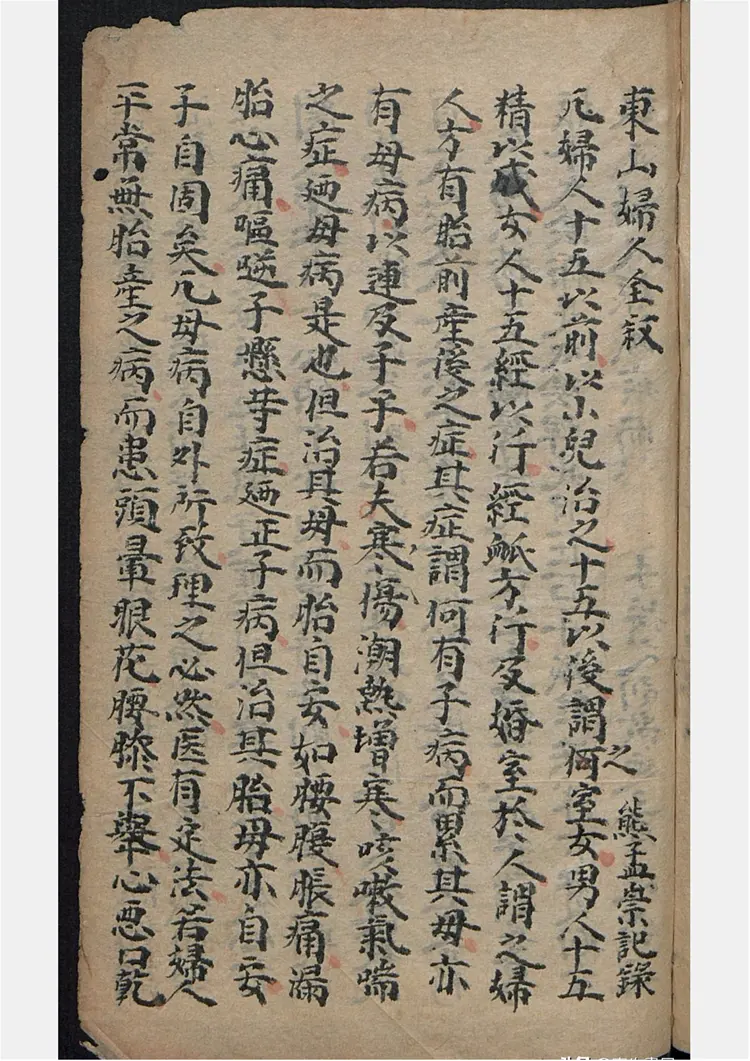 東山婦人全叙 熊孟崇記錄
凢婦人十五以前以小兒治之十五以後謂何之室女男人十五
精以成女人十五經以行經〇方行及婚室於人謂之婦
人方有胎前產後之症其症謂何有子病而累其母亦
有母病以連及子子若夫寒傷潮熱增寒咳嗽氣喘
之症廼母病是也但治其母而胎自安如腰腹脹痛漏
胎心痛嘔逆子懸等症廼正子病但治其胎母亦自安
子自固矣凢母病自外所致理之必然医有定法若婦人
平常無胎産之病而患頭暈眼花腰膝不舉心悪口乾